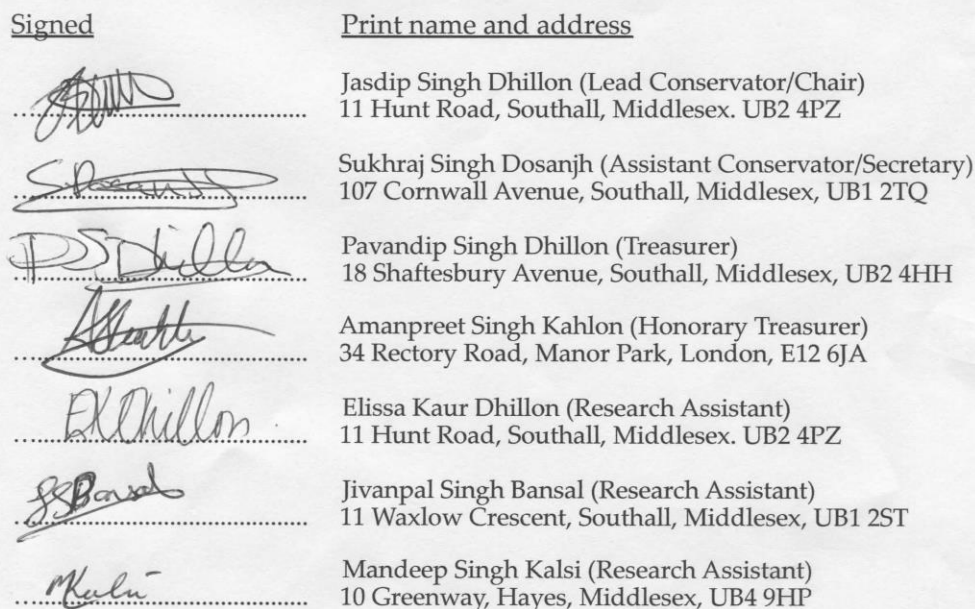 Signed Print name and address
Jasdip Singh Dhillon (Lead Conservator/Chair)
11 Hunt Road, Southall, Middlesex. UB2 4PZ
Sukhraj Singh Dosanjh (Assistant Conservator/Secretary)
107 Cornwall Avenue, Southall, Middlesex, UB1 2TQ
PS Dhillon
Pavandip Singh Dhillon (Treasurer)
18 Shaftesbury Avenue, Southall, Middlesex, UB2 4HH
Amanpreet Singh Kahlon (Honorary Treasurer)
34 Rectory Road, Manor Park, London, E12 6JA
EKDhillon
Elissa Kaur Dhillon (Research Assistant)
11 Hunt Road, Southall, Middlesex. UB2 4PZ
Jivanpal Singh Bansal (Research Assistant)
11 Waxlow Crescent, Southall, Middlesex, UB1 2ST
Mandeep Singh Kalsi (Research Assistant)
10 Greenway, Hayes, Middlesex, UB4 9HP